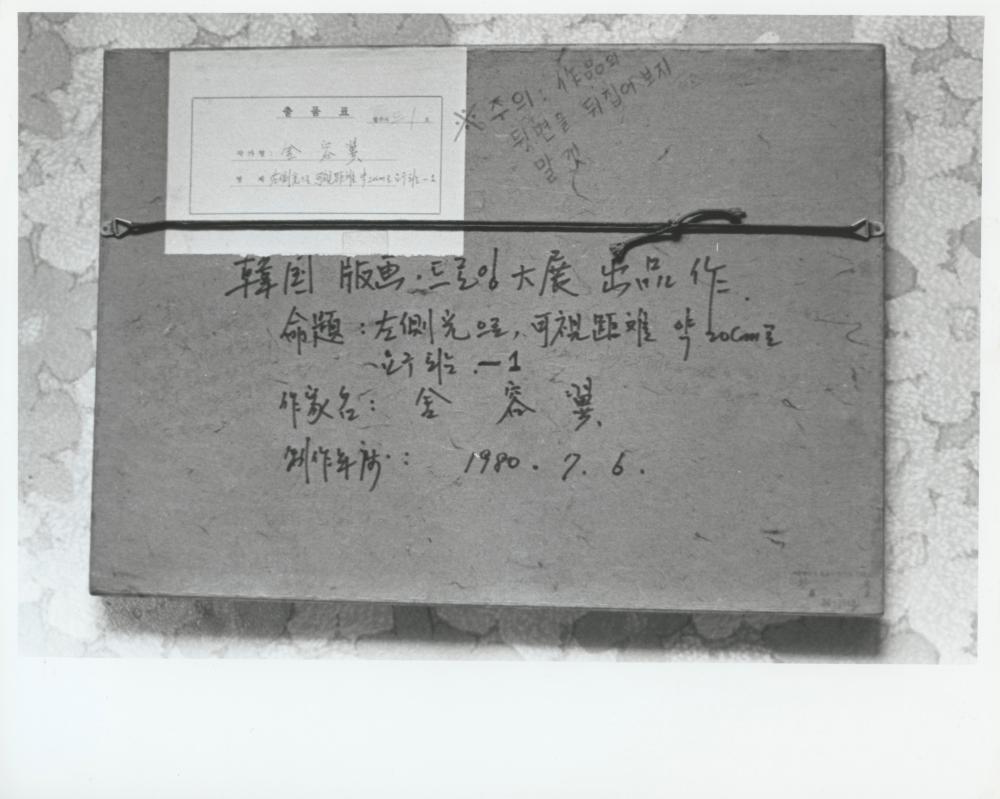 출품표
작가명: 金容翼
명제 左側光으로 可視距離 약 20cm로 요구되는 -1
※주의: 作品의
뒷면을 뒤집어보지
말것
韓国 版画·드로잉 大展 出品作.
命題: 左側光으로, 可視距離 약 20cm로
요구되는. -1
作家名: 金容翼
制作年月: 1980. 7. 6.